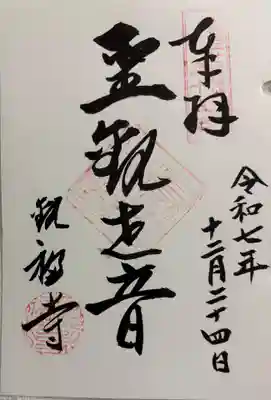 奉拝
令和七年
十二月二十四日
聖観世音
観福寺